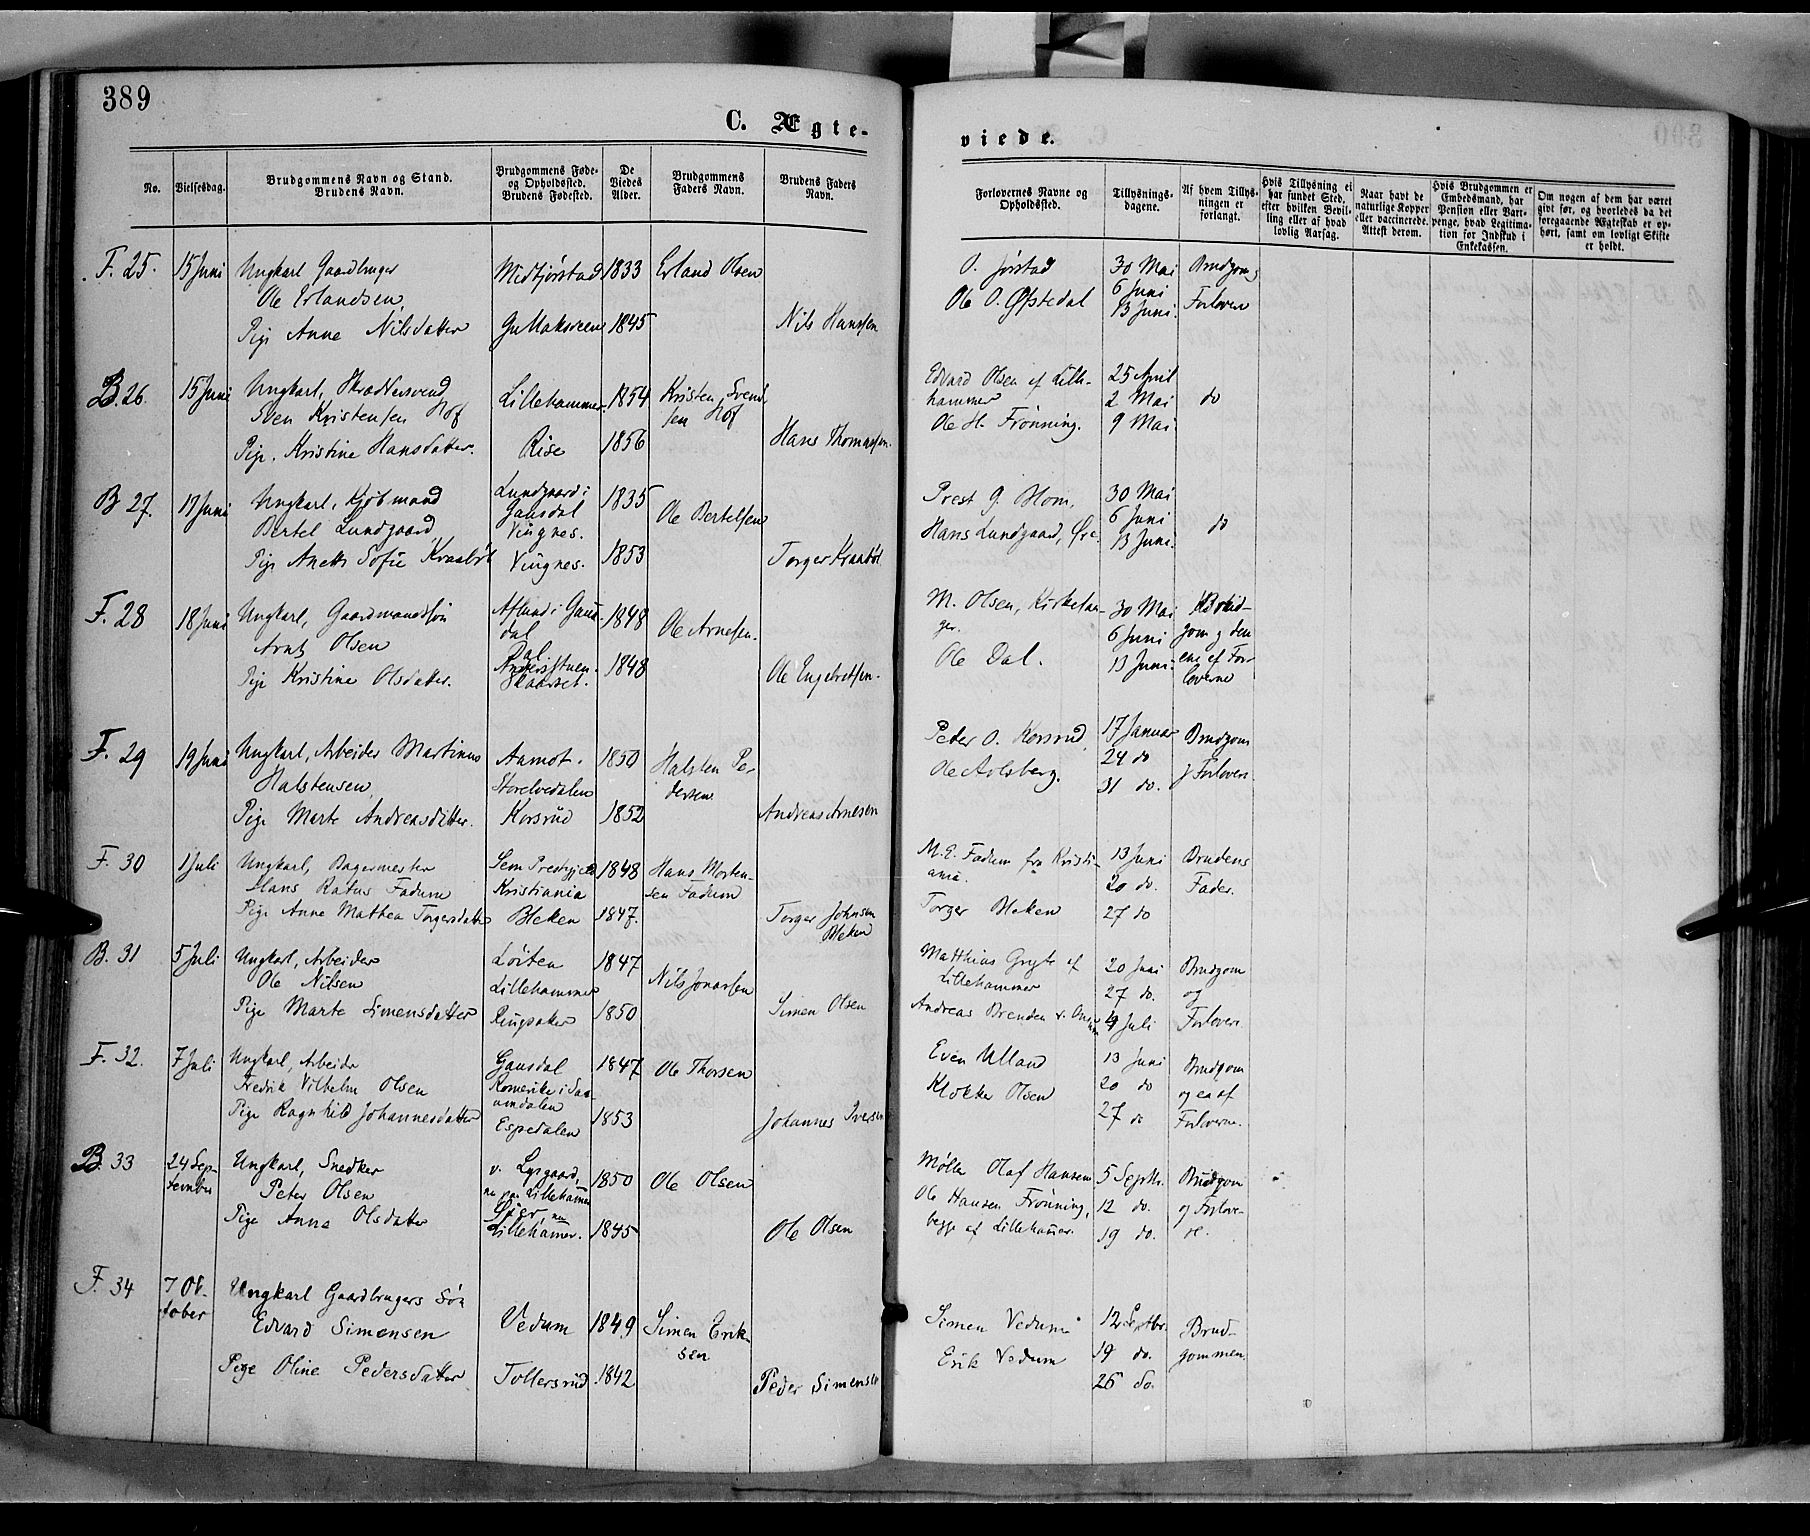 389
C. Ægte-
viede.
No.
Vielsesdag.
Brudgommens Navn og Stand.
Brudens Navn.
Brudgommens Føde-
og Opholdssted.
Brudens Fødested.
De
Viedes
Alder.
Brudgommens
Faders Navn.
Brudens Faders
Navn.
Forlovernes Navne og
Opholdssted.
Tillysnings-
dagene.
Af hvem Tillys-
ningen er
forlangt.
Hvis Tillysning ei
har fundet Sted,
efter hvilken Bevil-
ling eller af hvad
lovlig Aarsag.
Naar havt de
naturlige Kopper
eller vaccinerede.
Attest derom.
Hvis Brudgommen er
Embedsmand, har
Pension eller Vart-
penge, hvad Legitima-
tion for Indskud i
Enkekassen.
Om nogen af dem har været
givt før, og hvorledes da det
foregaaende Ægteskab er op-
hørt, samt om lovligt Skifte
er holdt.
F. 25. 15 Juni Ungkarl Gaardbruger Midtjørstad 1833 Erland Olsen
Ole Erlandsen
Pige Anne Nilsdatter 1845 Nils Hanssen
O. Jørstad 30 Mai Brudgom og
Ole O. Øfstedal 6 Juni Forlovere
13 Juni.
B. 26. 15 Juni Ungkarl, Skrædersvend Lillehammer 1854 Kristen Svend-
Sven Kristensen Hof sen Hof
Pige Kristine Hansdatter. Rise 1856 Hans Thomassen.
Edvard Olsen af Lille- 25 April
hammer 2 Mai do
Ole H. Frønning. 9 Mai
B 27. 17 Juni Ungkarl, Kjøbmand Lundgaard i 1835 Ole Bertelsen
Bertel Lundgaard Gausdal
Vingnes.
Pige Anette Sofie Kraabøl Vingnes. 1853 Torger Kraabøl
Prest G. Blom, 30 Mai
6 Juni do
Hans Lundgaard, 13 Juni.
F. 28 18 Juni Ungkarl, Gaardmandssøn Aflund i Gaus- 1848 Ole Arnesen.
Arnt Olsen dal
Dal.
Pige Kristine Olsdatter. Skaarset. 1848 Ole Engebretsen.
M. Olsen, Kirkestan- 30 Mai Brud-
ger. 6 Juni gom og den
Ole Dal. 13 Juni. ene af For-
loverne
F. 29 19 Juni Ungkarl, Arbeider Martinus Aamot. 1850 Halsten Pe-
Halstensen. Storelvedalen dersen
Pige Marte Andreasdatter. Korsrud 1852 Andreas Arnesen
Peter O. Korsrud 17 Januar Brudgom
Ole Aolsberg. 24 do og Forlovere
31 do.
F. 30 1 Juli Ungkarl, Bagermester Sem Prestegjeld 1848 Hans Morten-
Hans Ratus Fadum Kristiania sen Fadum
Pige Anne Mathea Torgersdatter Bleken 1847. Torger Johnsen
Bleken
M. E. Fadum fra Kristi- 13 Juni Brudens
ania. 20 do. Fader.
Torger Bleken 27 do
B. 31 5 Juli Ungkarl, Arbeider Løiten 1847
Ole Nilsen Lillehammer Nils Jonassen
Pige Marte Simensdatter Ringsaker 1850 Simen Olsen
Matthias Gryte af 20 Juni Brudgom
Lillehammer 27 do. og
Andreas Brenden 4 Juli Forlovere
F. 32. 7 Juli Ungkarl, Arbeider Gausdal 1847 Ole Thorsen
Fredrik Vilhelm Olsen Romerike i
Pige Ragnhild Johannesdatter Espedalen 1853 Johannes Iversen
Even Ulland 13 Juni Brudgom
Klokker Olsen 20 do og en af
27 do Forloverne.
B. 33 24 Sep- Ungkarl, Snedker v. Lysgaard, 1850 Ole Olsen
tember Peter Olsen nu paa Lillehammer
Pige Anne Olsdatter Lillehamer. 1845 Ole Olsen
Møller Olaf Hansen 5 Septbr. Brudgom
Ole Hansen Frønning, 12 do. og Forlove-
begge af Lillehamer. 19 do. re.
F. 34 7 Ok- Ungkarl Gaardbrugers Søn
tober Edvard Simensen Vedum 1849 Simen Erik-
sen
Pige Oline Pedersdatter Tollersrud 1842 Peder Simensen
Simen Vedum 12 Septbr. Brud-
Erik Vedum 19 do. gommen
26 do.